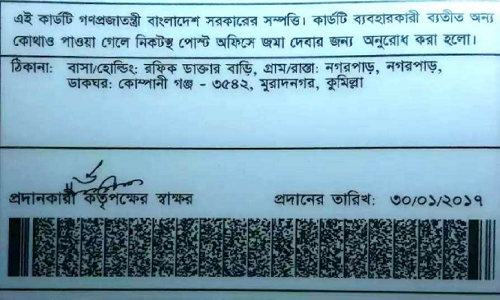 এই কার্ডটি গণপ্রজাতন্ত্রী বাংলাদেশ সরকারের সম্পত্তি। কার্ডটি ব্যবহারকারী ব্যতীত অন্য
কোথাও পাওয়া গেলে নিকটস্থ পোস্ট অফিসে জমা দেবার জন্য অনুরোধ করা হলো।
ঠিকানা: বাসা/হোল্ডিং: রফিক ডাক্তার বাড়ি, গ্রাম/রাস্তা: নগরপাড়, নগরপাড়,
ডাকঘর: কোম্পানী গঞ্জ - ৩৫৪২, মুরাদনগর, কুমিল্লা
প্রদানকারী কর্তৃপক্ষের স্বাক্ষর প্রদানের তারিখ: ৩০/০১/২০১৭